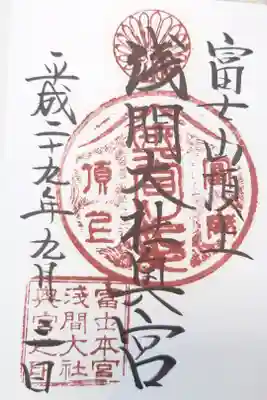 富士山頂上
淺間大社奥宮
平成二十九年九月三日
頂上
富士本宮
淺間大社
奥宮之印